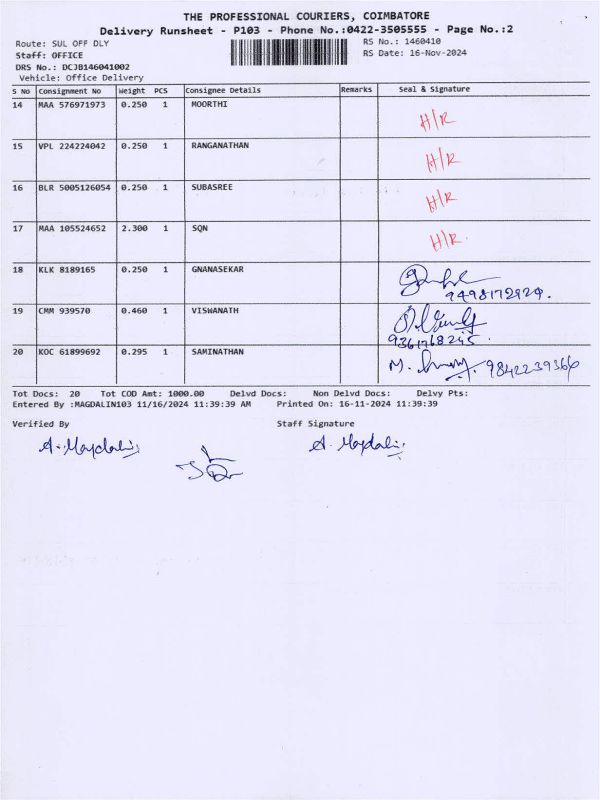 THE PROFESSIONAL COURIERS, COIMBATORE
Delivery Runsheet - P103 - Phone No.:0422-3505555 - Page No.:2
Route: SUL OFF DLY RS No.: 1460410
Staff: OFFICE RS Date: 16-Nov-2024
DRS No.: DCJB146041002
Vehicle: Office Delivery
S No Consignment No Weight PCS Consignee Details Remarks Seal & Signature
14 MAA 576971973 0.250 1 MOORTHI H/R
15 VPL 224224042 0.250 1 RANGANATHAN H/R
16 BLR 5005126054 0.250 1 SUBASREE H/R
17 MAA 105524652 2.300 1 SQN H/R.
18 KLK 8189165 0.250 1 GNANASEKAR
19 CMM 939570 0.460 1 VISWANATH
20 KOC 61899692 0.295 1 SAMINATHAN M. 9842239366
Tot Docs: 20 Tot COD Amt: 1000.00 Delvd Docs: Non Delvd Docs: Delvy Pts:
Entered By :MAGDALIN103 11/16/2024 11:39:39 AM Printed On: 16-11-2024 11:39:39
Verified By Staff Signature
A. Magdalin A. Magdalin